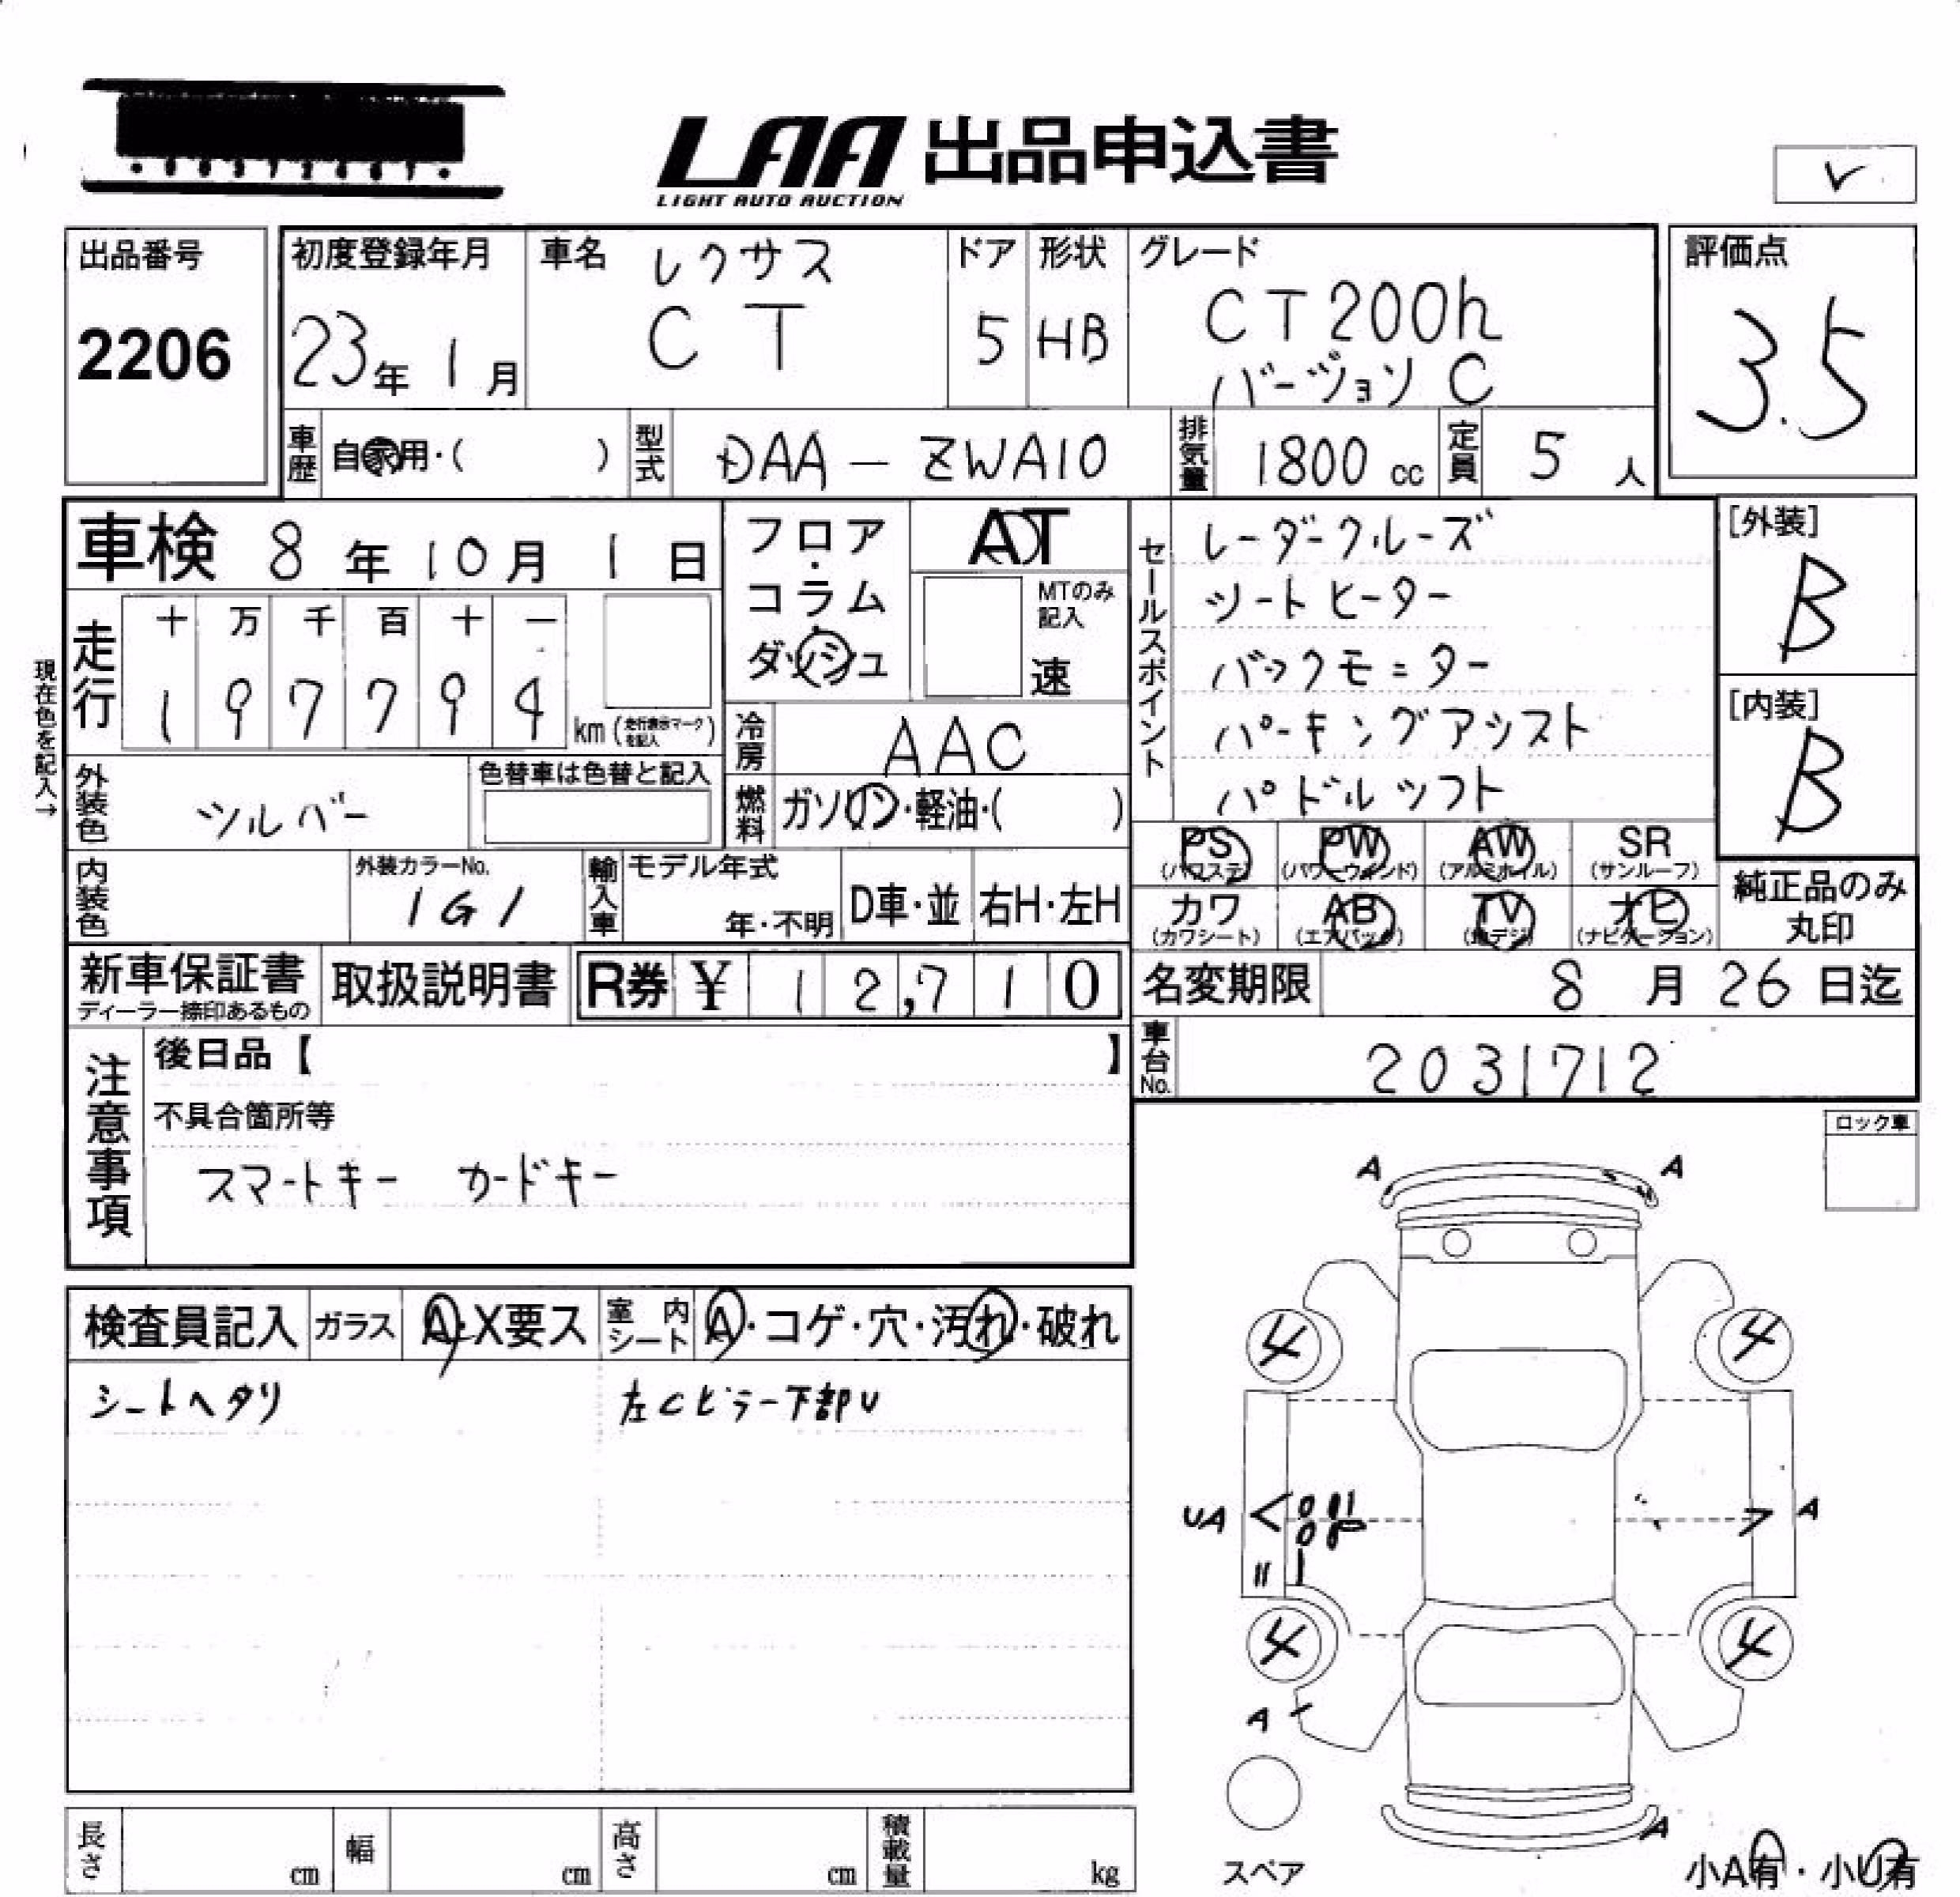 LAA 出品申込書
LIGHT AUTO AUCTION
出品番号
2206
初度登録年月
23年 1月
車名 レクサス
CT
ドア
5
形状
HB
グレード
CT200h
バージョン C
評価点
3.5
車歴 自家用・( )
型式 DAA-ZWA10
排気量 1800 cc
定員 5 人
車検 8年10月1日
フロア・
コラム・
ダッシュ
AT
MTのみ
記入
速
現在色を記入→
走行
十 万 千 百 十 一
1 9 7 7 9 4
km (走行表示マークを記入)
冷房 AAC
外装色 シルバー
色替車は色替と記入
燃料 ガソリン・軽油・( )
内装色
外装カラーNo.
1G1
輸入車
モデル年式
年・不明
D車・並
右H・左H
セールスポイント
レーダークルーズ
シートヒーター
バックモニター
パーキングアシスト
パドルシフト
[外装]
B
[内装]
B
PS (パワステ)
PW (パワーウインド)
AW (アルミホイル)
SR (サンルーフ)
カワ (カワシート)
AB (エアバック)
TV (地デジ)
ナビ (ナビゲーション)
純正品のみ
丸印
新車保証書
ディーラー捺印あるもの
取扱説明書
R券 ¥ 12,710
名変期限 8月26日迄
車台No. 2031712
注意事項
後日品【 】
不具合箇所等
スマートキー カードキー
ロック車
検査員記入
ガラス A・X要ス
室内シート A・コゲ・穴・汚れ・破れ
シートヘタリ
左Cピラー下部U
A A
4 4
UA A
4 4
A
A
スペア
小A有・小U有
長さ cm
幅 cm
高さ cm
積載量 kg